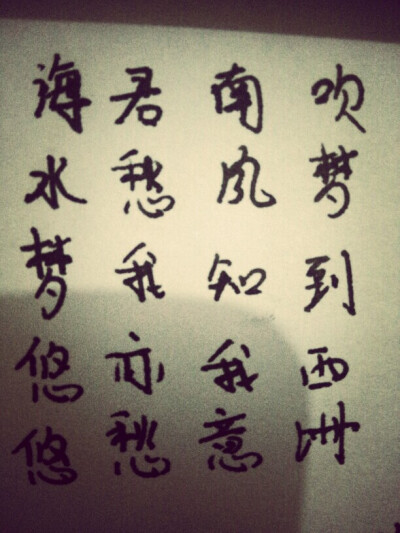 海水梦悠悠
君愁我亦愁
南风知我意
吹梦到西洲